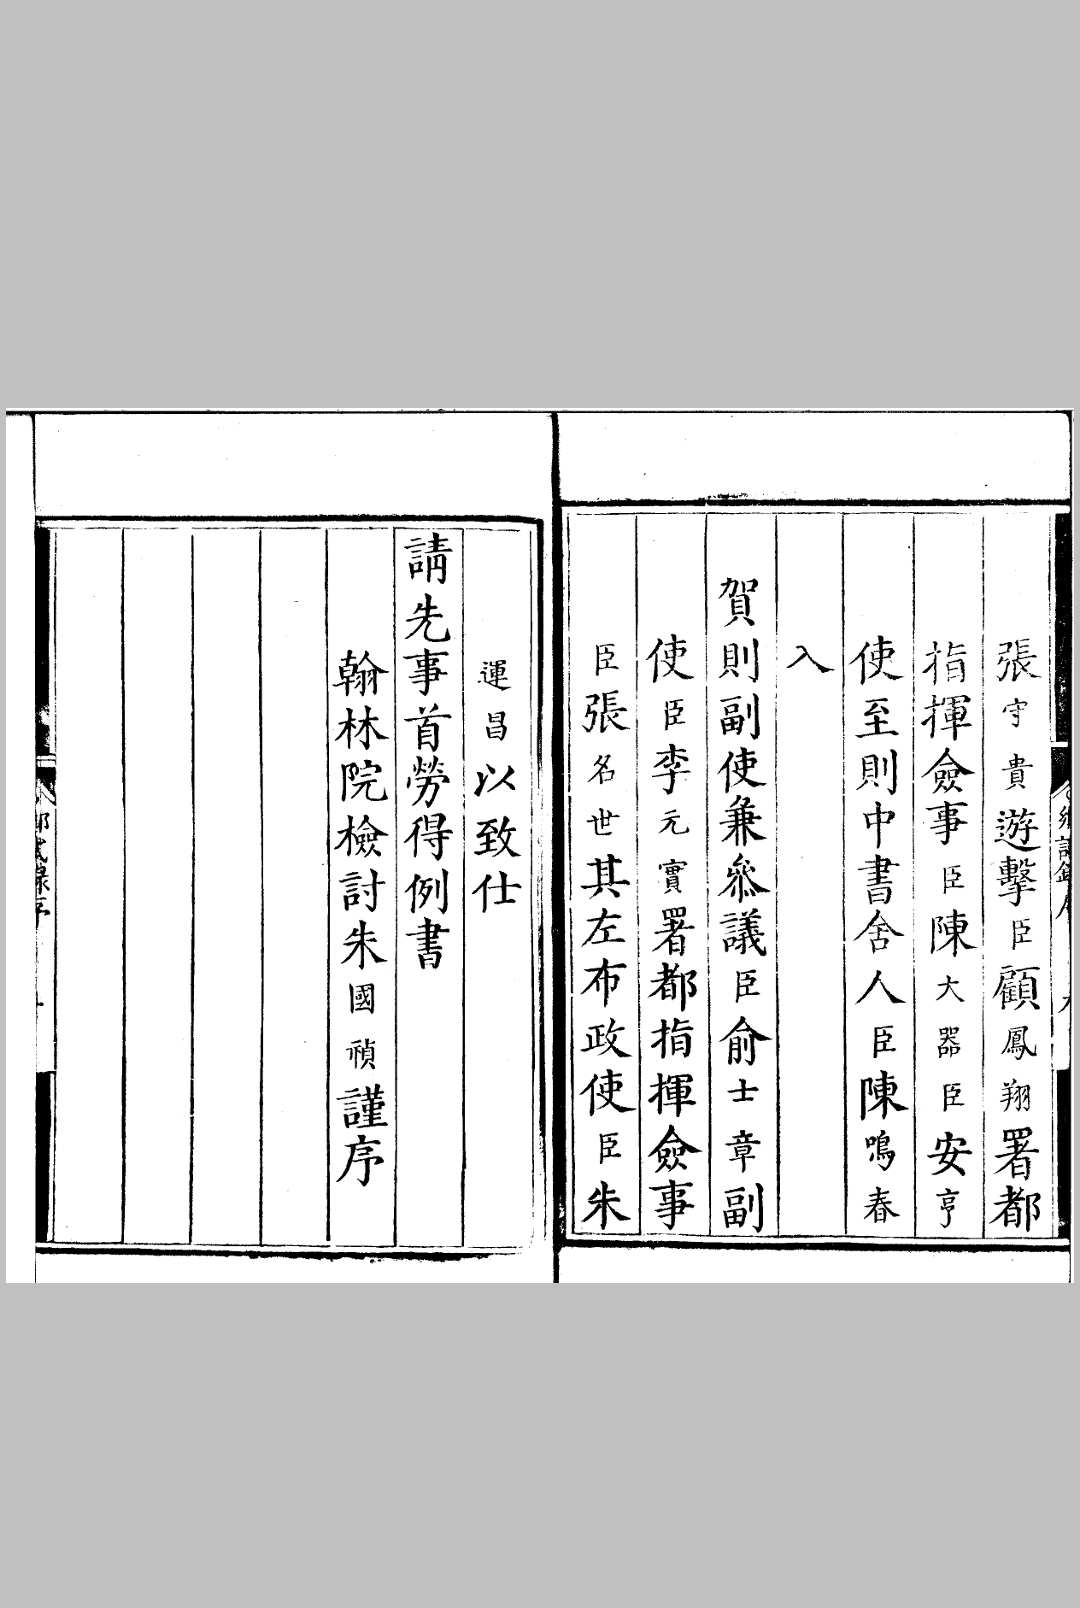 張守貴遊擊臣顧鳳翔署都
指揮僉事臣陳大器臣安亨
使至則中書舍人臣陳鳴春
入
賀則副使兼叅議臣俞士章副
使臣李元實署都指揮僉事
臣張名世其左布政使臣朱
運昌以致仕
請先事首勞得例書
翰林院檢討朱國禎謹序